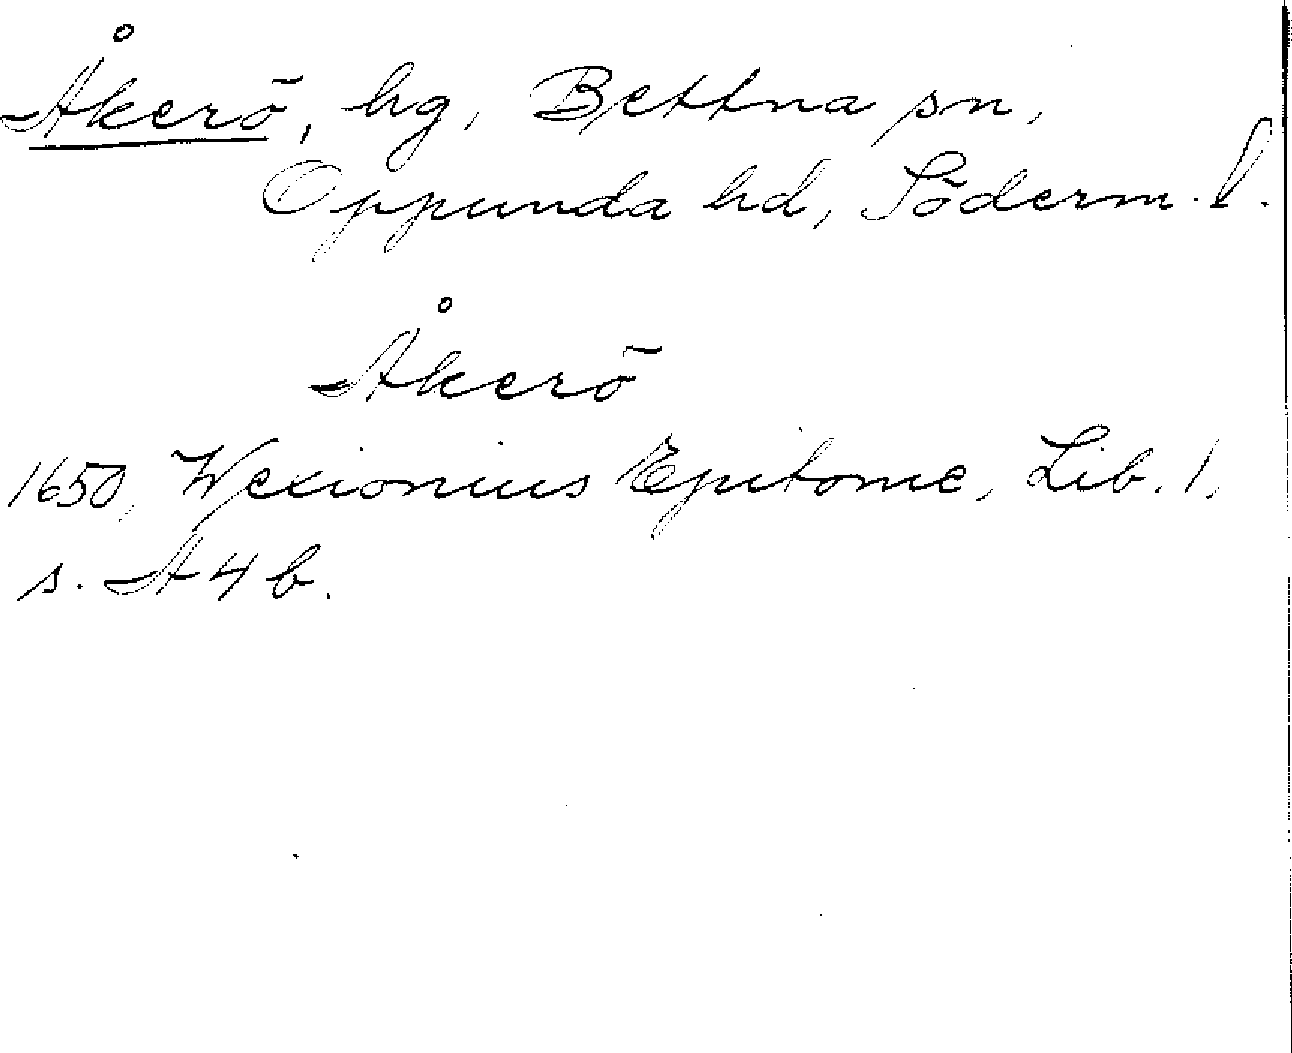 Åkerö, hg, Bettna sn,
Oppunda hd, Söderm. l.
Åkerö
1650, Wexionius Epitome, Lib. 1,
s. A 4 b.